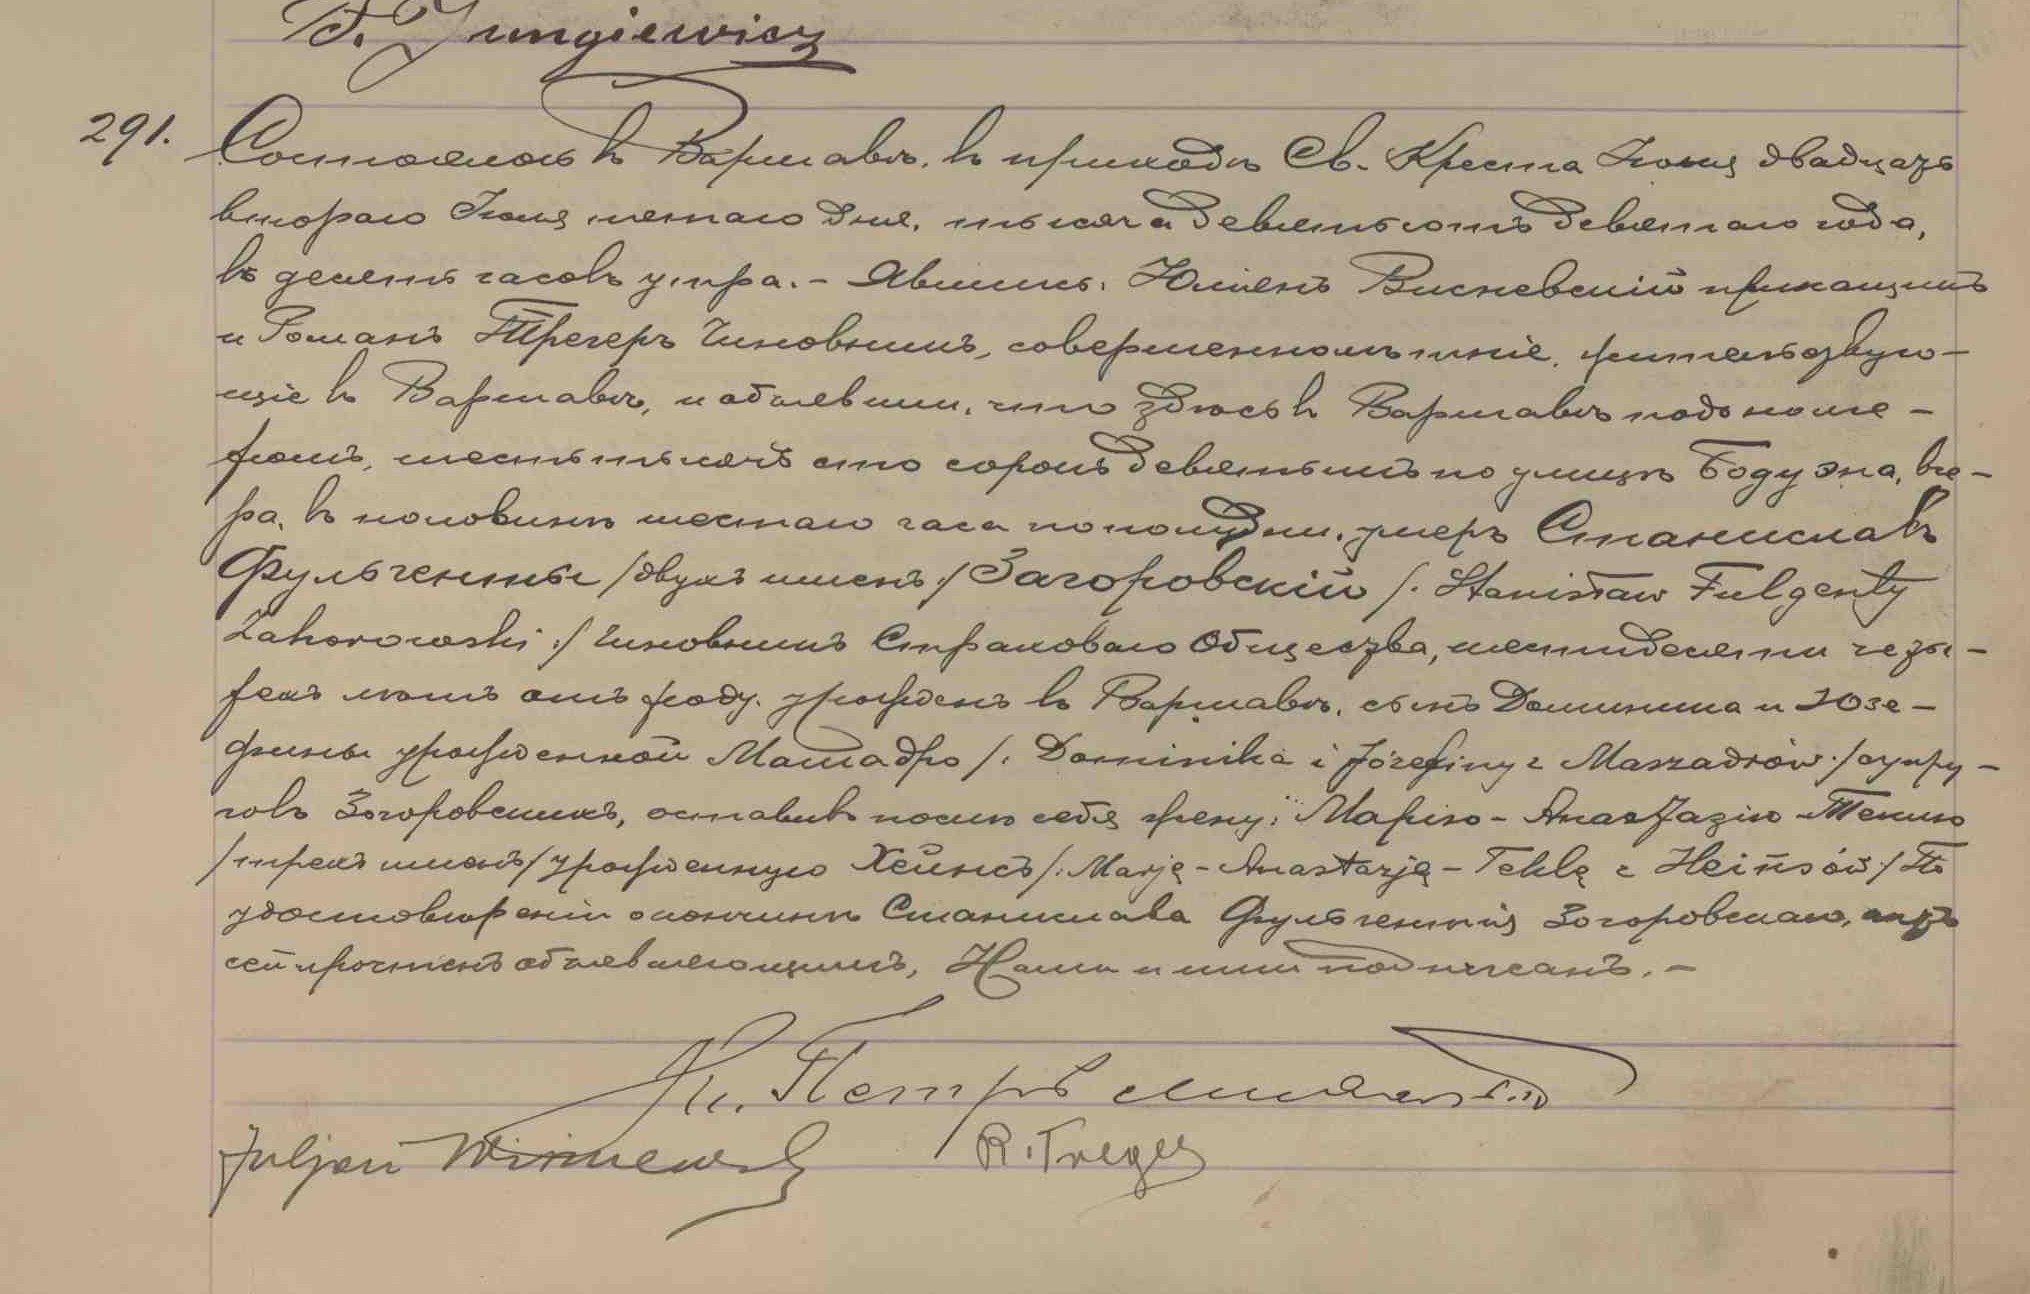 J. Jungiewicz
291. Состоялось въ Варшавѣ, въ приходѣ Св. Креста Іюня двадцать
втораго Іюля пятаго дня, тысяча девятьсотъ девятаго года,
въ десять часовъ утра. – Явились: Юліанъ Висневскій приказчикъ
и Романъ Трегеръ чиновникъ, совершеннолѣтніе, жительствую-
щіе въ Варшавѣ, и объявили, что здѣсь въ Варшавѣ подъ номе-
ромъ, шесть тысячъ сто сорокъ девятымъ по улицѣ Бодуэна, вче-
ра, въ половинѣ шестаго часа по полудни, умеръ Станиславъ
Фульгенты /двухъ именъ:/ Загоровскій /: Stanisław Fulgenty
Zahorowski :/ чиновникъ Страховаго Общества, шестидесяти четы-
рехъ лѣтъ отъ роду, урожденъ въ Варшавѣ, сынъ Доминика и Юзе-
фины урожденной Машадро /: Dominika i Józefiny z Maszadrów :/ супру-
говъ Загоровскихъ, оставивъ послѣ себя жену: Марію-Анастазію-Теклю
/трехъ именъ/ урожденную Хейнсъ /: Marję-Anastazję-Teklę z Heinsów :/ По
удостовѣреніи о кончинѣ Станислава Фульгентія Загоровскаго, актъ
сей прочтенъ объявляющимъ, Нами и ими подписанъ. –
Кс. Петръ
Juljan Wisniewski R. Treger